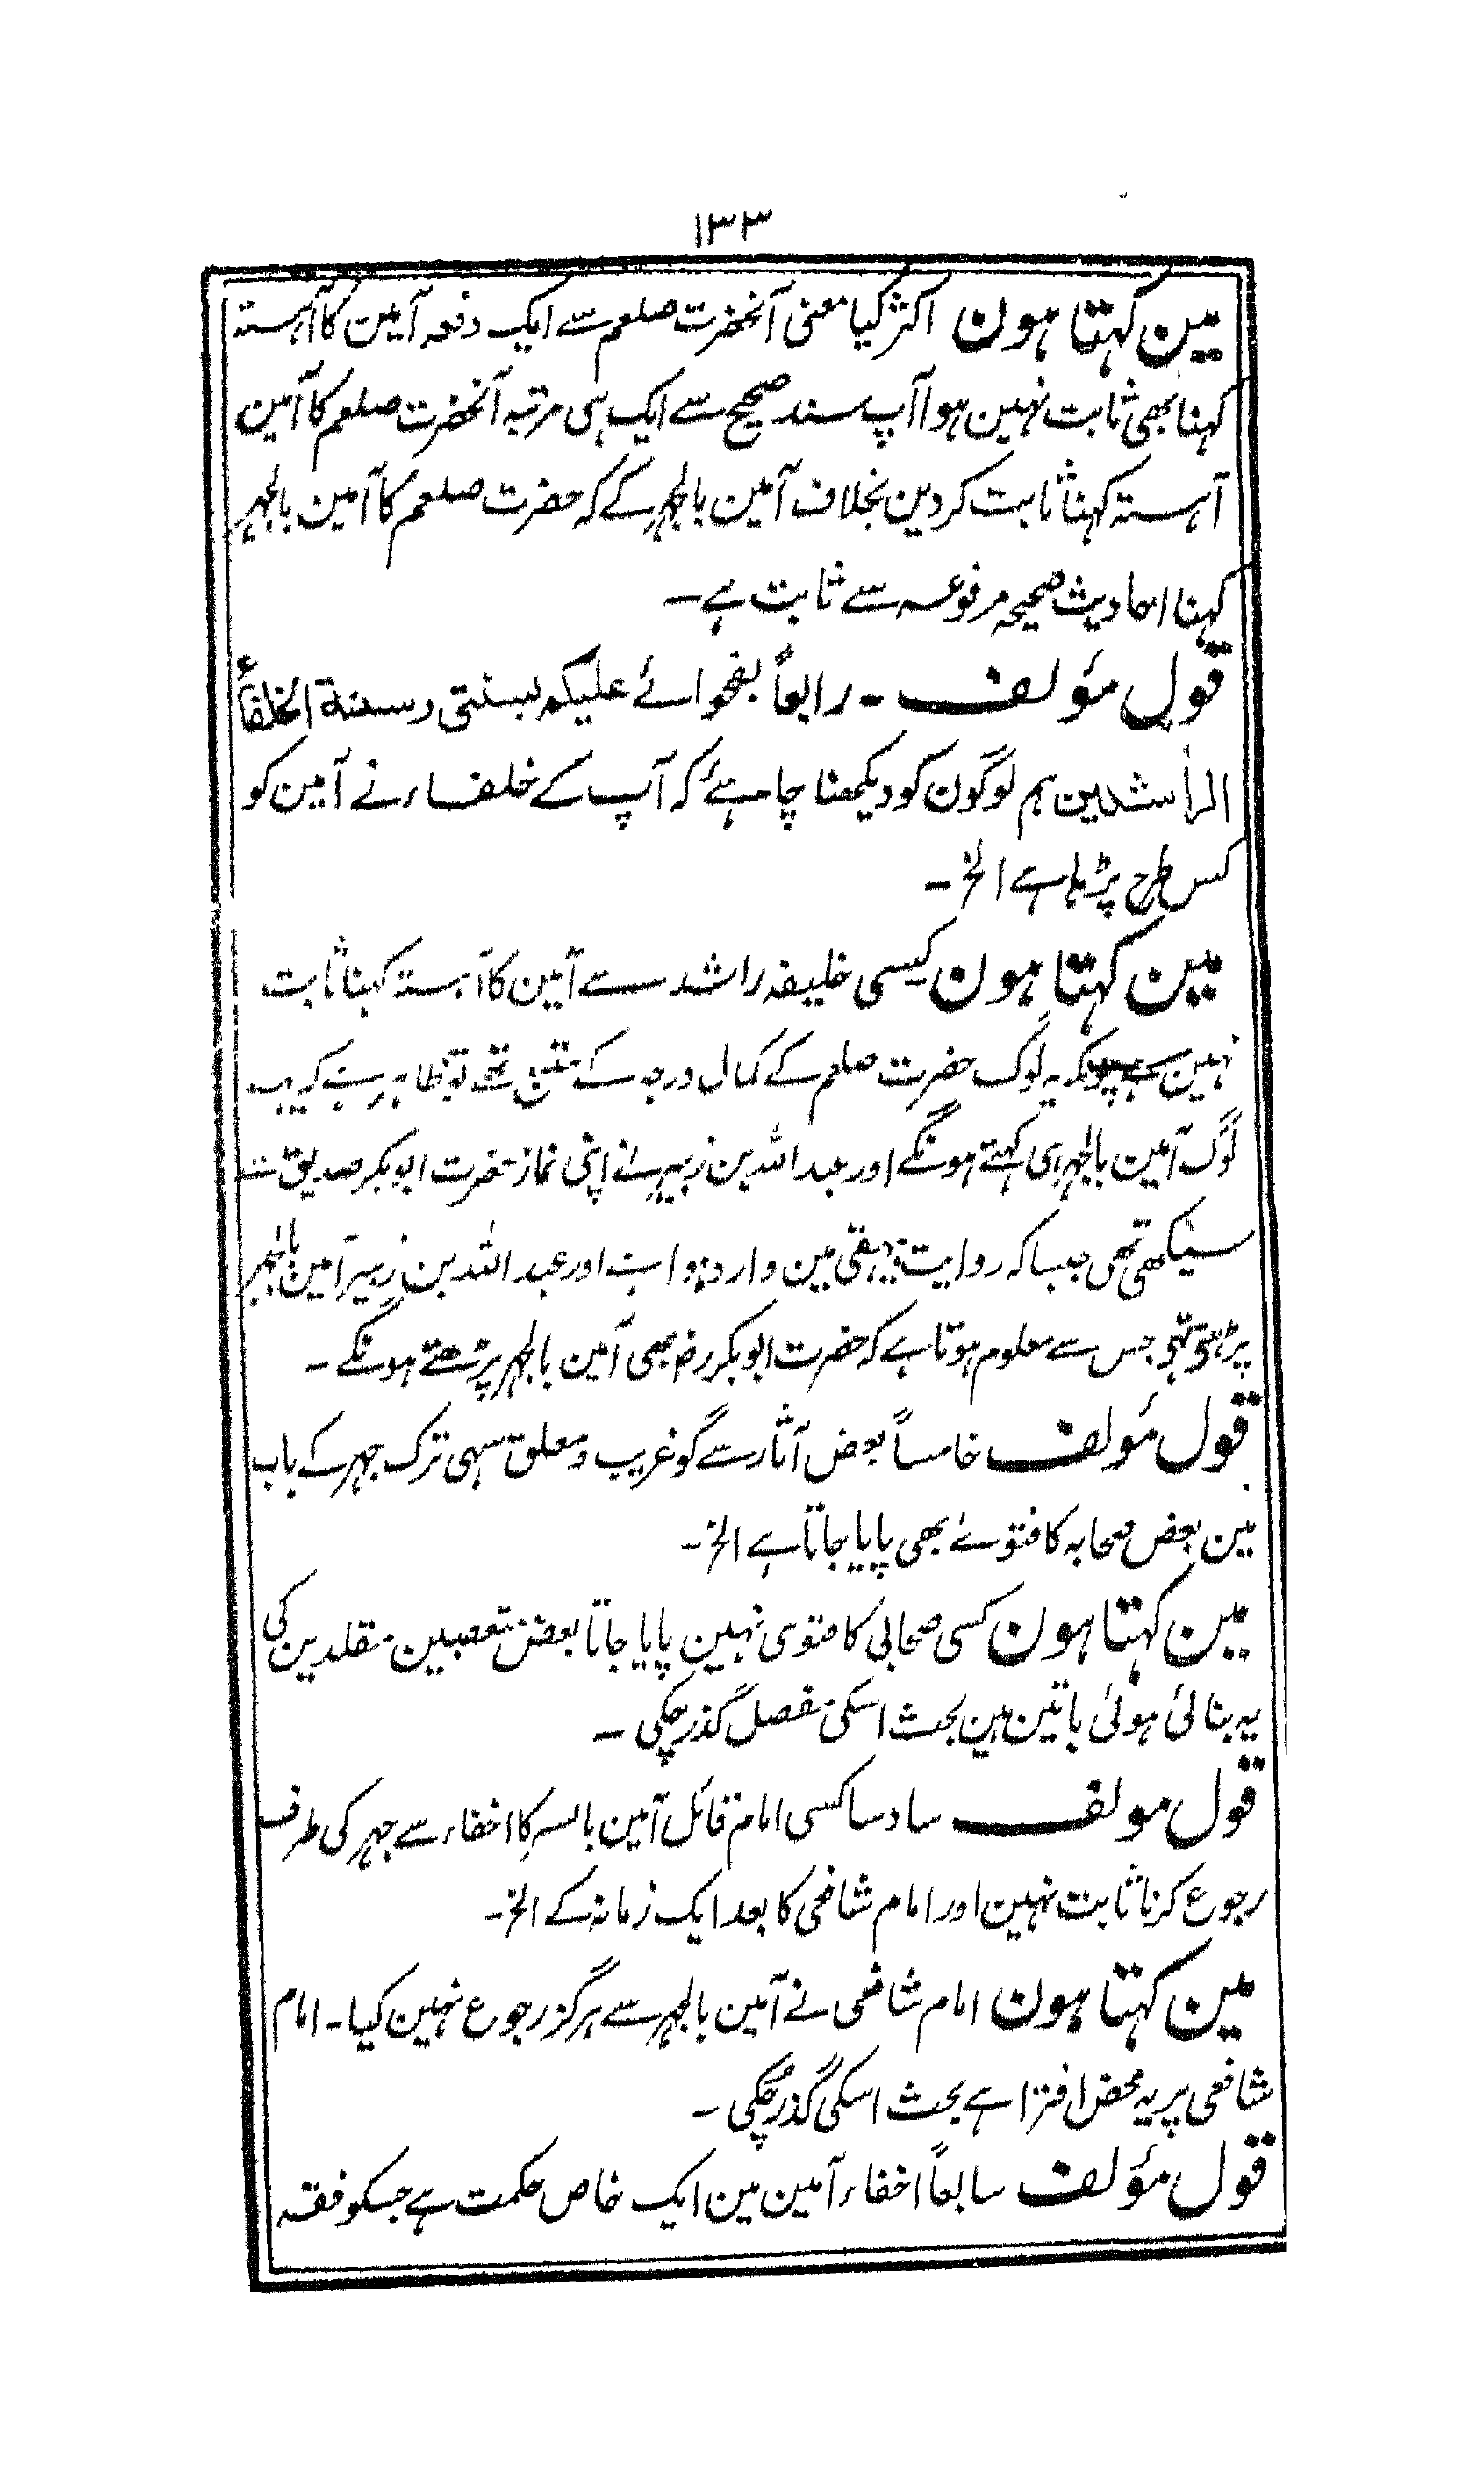 ۱۳۳
مین کہتا ہون اکثر کیا معنی آنحضرت صلعم سے ایک دفعہ آمین کا آہستہ
کہنا بھی ثابت نہین ہوا آپ سند صحیح سے ایک ہی مرتبہ آنحضرت صلعم کا آمین
آہستہ کہنا ثابت کردین بخلاف آمین بالجہر کے کہ حضرت صلعم کا آمین بالجہر
کہنا احادیث صحیحہ مرفوعہ سے ثابت ہے ۔
قول مؤلف ۔ رابعاً بفحوائے علیکم بسنتی وسنة الخلفاء
الراشدین ہم لوگون کو دیکھنا چاہئے کہ آپ کے خلفاء نے آمین کو
کس طرح پڑہا ہے الخ ۔
مین کہتا ہون کیسی خلیفہ راشد سے آمین کا آہستہ کہنا ثابت
نہین یہ لوگ حضرت صلعم کے کمال درجہ کے متبع تھے تو ظاہر ہے کہ یہ
لوگ آمین بالجہر ہی کہتے ہونگے اور عبد اللہ بن زبیر نے اپنی نماز حضرت ابو بکر صدیق سے
سیکھی تھی جیسا کہ روایت بیہقی مین وارد ہوا ہے اور عبد اللہ بن زبیر آمین بالجہر
پڑہتے تھے جس سے معلوم ہوتا ہے کہ حضرت ابو بکر رض بھی آمین بالجہر پڑھتے ہونگے ۔
قول مؤلف خامساً بعض آثار سے گو غریب و معلق سہی ترک جہر کے باب
مین بعض صحابہ کا فتویٰ بھی پایا جاتا ہے الخ ۔
مین کہتا ہون کسی صحابی کا فتوی نہین پایا جاتا بعض متعصبین مقلدین کی
یہ بنائی ہوئی باتین ہین بحث اسکی مفصل گذر چکی ۔
قول مولف سادسا کسی امام قائل آمین بالسر کا اخفاء سے جہر کی طرف
رجوع کرنا ثابت نہین اور امام شافعی کا بعد ایک زمانہ کے الخ ۔
مین کہتا ہون امام شافعی نے آمین بالجہر سے ہرگز رجوع نہین کیا ۔ امام
شافعی پر یہ محض افترا ہے بحث اسکی گذر چکی ۔
قول مؤلف سابعاً اخفاء آمین مین ایک خاص حکمت ہے جسکو فقہ